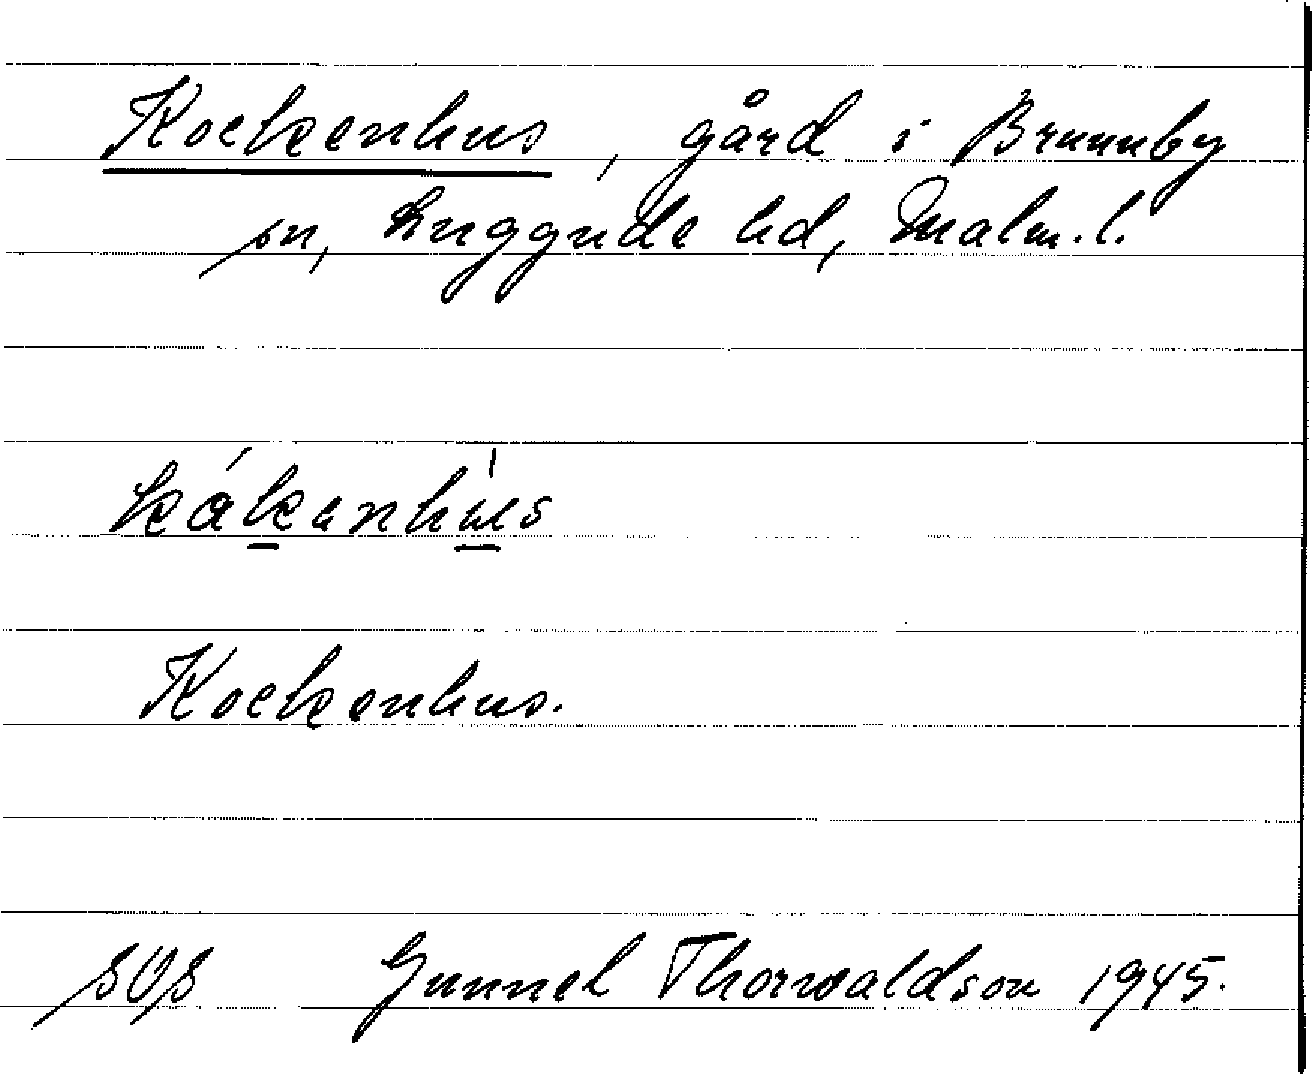 Kockenhus, gård i Brunnby
sn, Luggude hd, Malm. l.
kákanhus
Kockenhus.
SOS Gunnel Thorwaldson 1945.